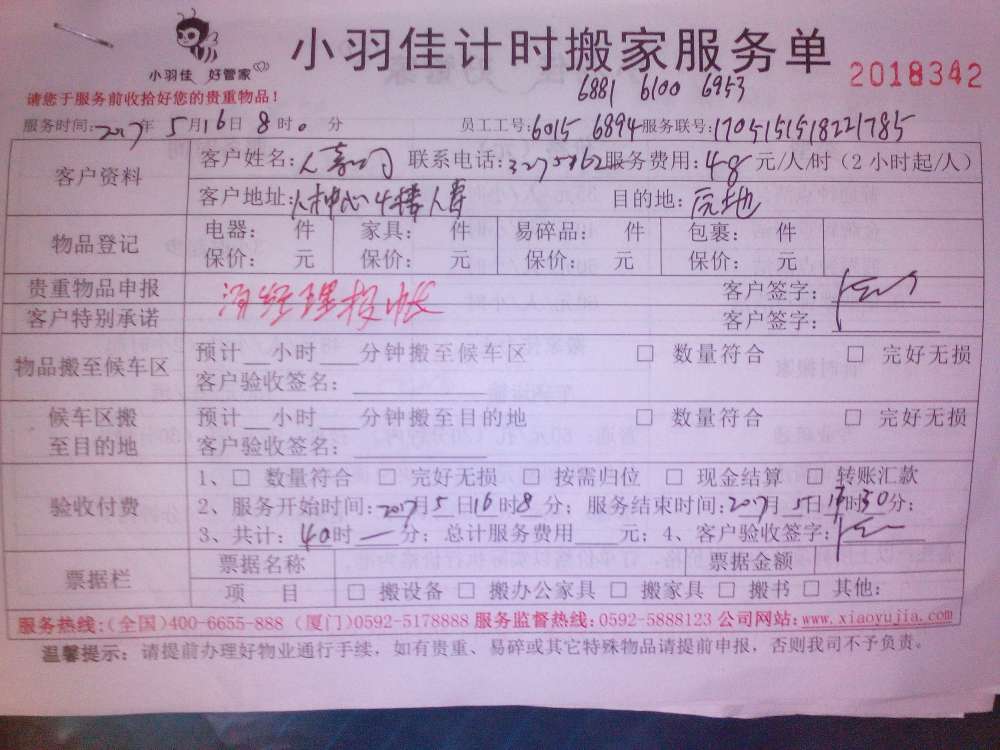 小羽佳 好管家
小羽佳计时搬家服务单
2018342
请您于服务前收拾好您的贵重物品！
6881 6100 6953
服务时间：2017年5月16日8时0分 员工工号：6015 6894 服务联号：1705151518221785
客户资料
客户姓名： 联系电话： 服务费用：48元/人/时（2小时起/人）
客户地址： 目的地：
物品登记
电器： 件 家具： 件 易碎品： 件 包裹： 件
保价： 元 保价： 元 保价： 元 保价： 元
贵重物品申报 客户签字：
客户特别承诺 客户签字：
物品搬至候车区
预计 小时 分钟搬至候车区 □ 数量符合 □ 完好无损
客户验收签名：
候车区搬至目的地
预计 小时 分钟搬至目的地 □ 数量符合 □ 完好无损
客户验收签名：
验收付费
1、□ 数量符合 □ 完好无损 □ 按需归位 □ 现金结算 □ 转账汇款
2、服务开始时间：2017月5日16时8分；服务结束时间：2017月5日 时30分；
3、共计：40时一分；总计服务费用 元；4、客户验收签字：
票据栏
票据名称 票据金额
项 目 □ 搬设备 □ 搬办公家具 □ 搬家具 □ 搬书 □ 其他：
服务热线：（全国）400-6655-888（厦门）0592-5178888 服务监督热线：0592-5888123 公司网站：www.xiaoyujia.com
温馨提示：请提前办理好物业通行手续，如有贵重、易碎或其它特殊物品请提前申报，否则我司不予负责。